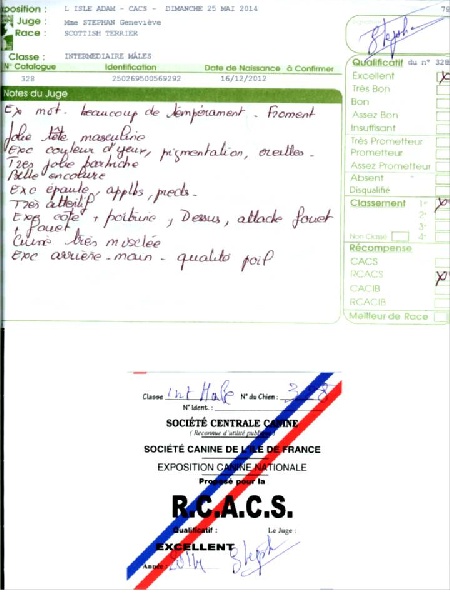 xposition : L ISLE ADAM - CACS - DIMANCHE 25 MAI 2014 78
Juge : Mme STEPHAN Geneviève
Race : SCOTTISH TERRIER
Classe : INTERMEDIAIRE MÂLES
N° Catalogue Identification Date de Naissance à Confirmer
328 250269500569292 16/12/2012
Notes du Juge
Ex mot. beaucoup de tempérament - Froment
Jolie tête, masculine
Exc couleur d'yeux, pigmentation, oreilles -
Très jolie
Belle encolure
Exc épaule, applbs, pieds -
Très attentif
Exc côte + poitrine, Dessus, attache fouet
+ fouet
Cuisse très musclée
Exc arrière-main - qualité poil
Stephan
Qualificatif du n° 328
Excellent X
Très Bon
Bon
Assez Bon
Insuffisant
Très Prometteur
Prometteur
Assez Prometteur
Absent
Disqualifié
Classement 1e X
2e
3e
Non Classé 4e
Récompense
CACS
RCACS X
CACIB
RCACIB
Meilleur de Race
Classe Int Male N° du Chien : 328
N° Ident. :
SOCIÉTÉ CENTRALE CANINE
(Reconnue d'utilité publique)
SOCIÉTÉ CANINE DE L'ÎLE DE FRANCE
EXPOSITION CANINE NATIONALE
Proposé pour la
R.C.A.C.S.
Qualificatif : Le Juge :
EXCELLENT
Année : 2014 Steph